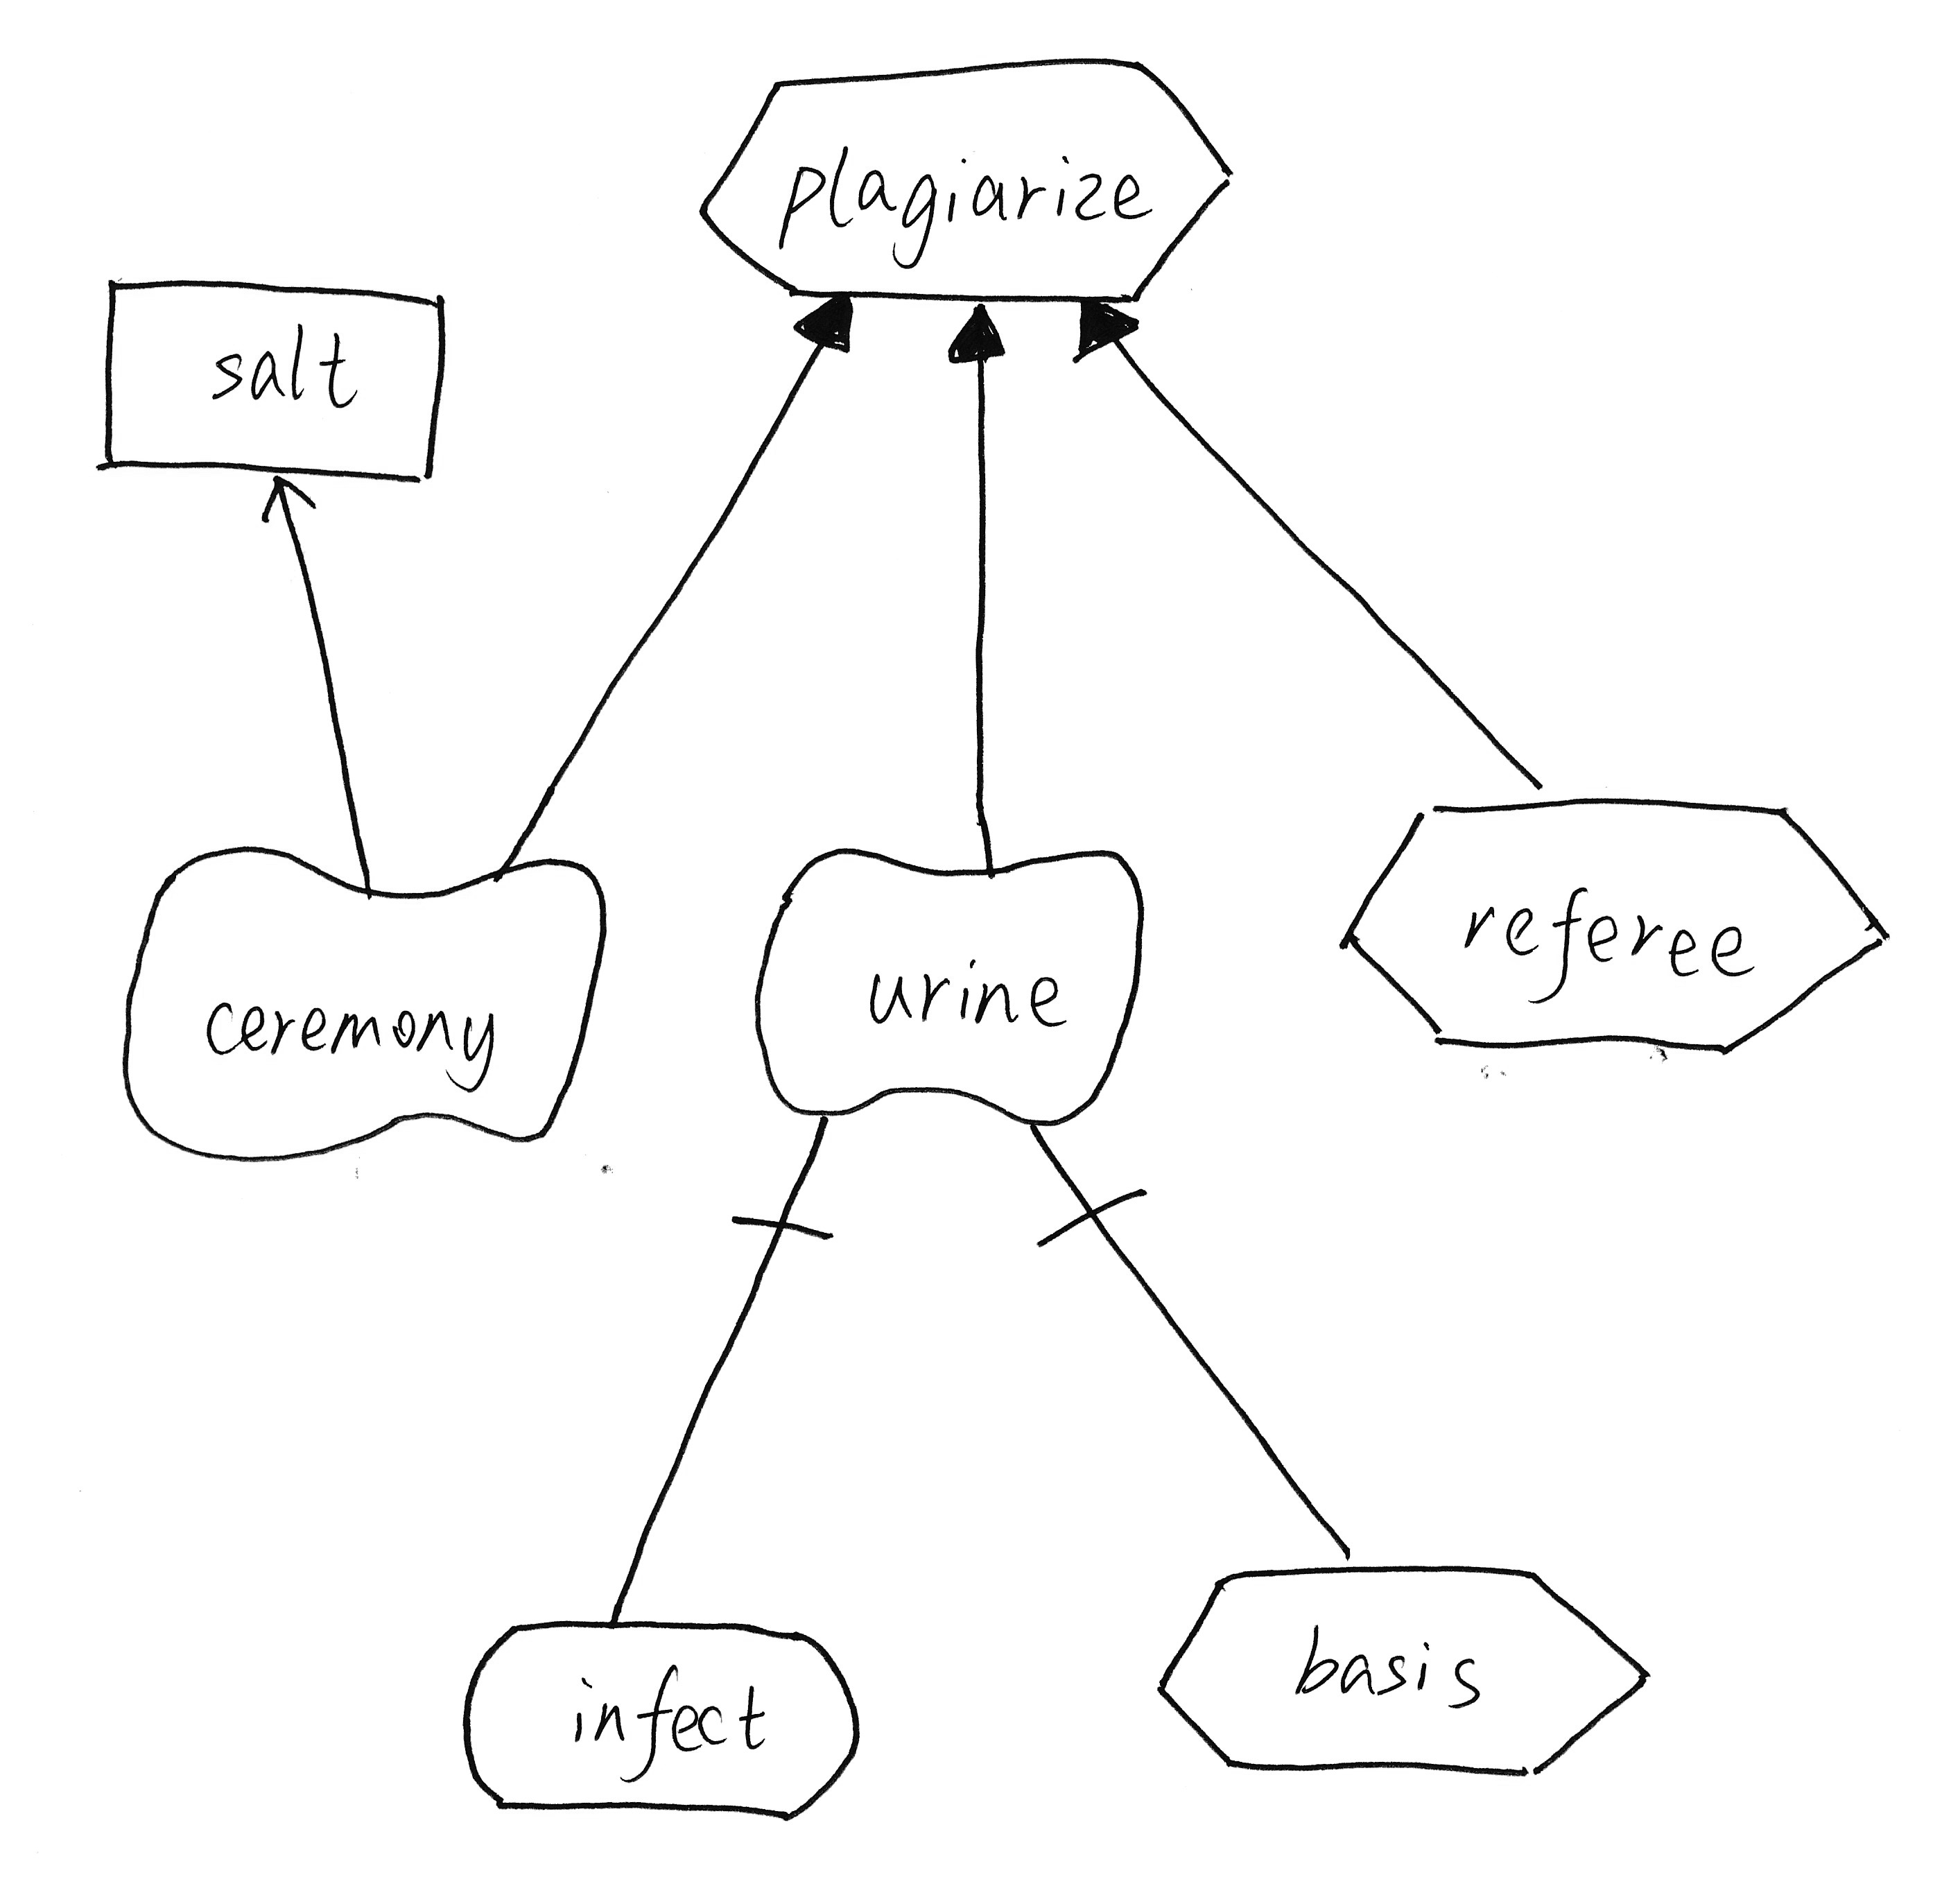 plagiarize
salt
ceremony
urine
referee
infect
basis